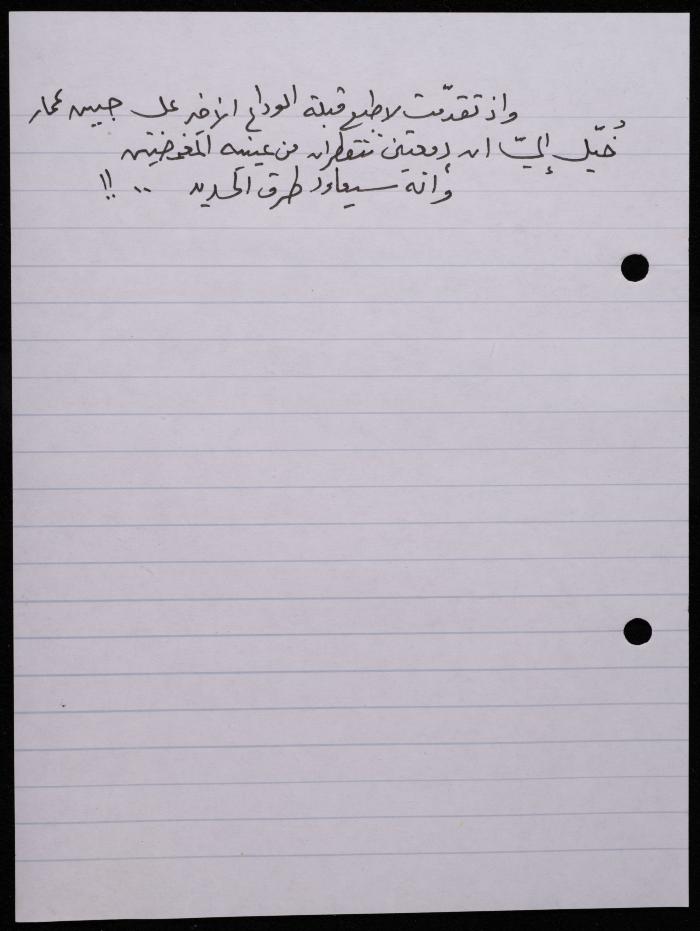 واذ تقدّمت لاطبع قبلة الوداع الأخير على جبين عمار
خُيّل إليّ ان دمعتين تتقطران من عينيه المغمضتين
وأنه سيعاود طرق الحديد .. !!